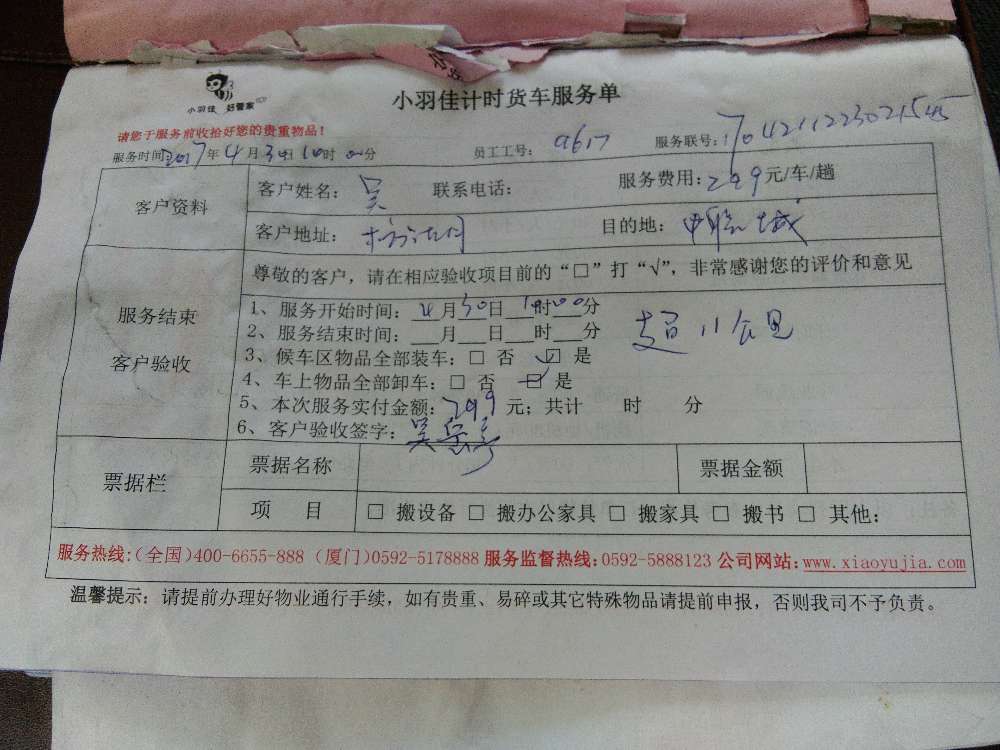 小羽佳 好管家
小羽佳计时货车服务单
请您于服务前收拾好您的贵重物品!
服务时间 2017年4月30日10时00分 员工工号: 9617 服务联号:
客户资料
客户姓名: 吴 联系电话: 服务费用: 299元/车/趟
客户地址: 目的地:
服务结束
客户验收
尊敬的客户,请在相应验收项目前的“□”打“√”,非常感谢您的评价和意见
1、服务开始时间: 4月30日 10时00分
2、服务结束时间: ___月___日___时___分
超11公里
3、候车区物品全部装车: □ 否 □ 是
4、车上物品全部卸车: □ 否 □ 是
5、本次服务实付金额: 299 元; 共计 时 分
6、客户验收签字: 吴
票据栏
票据名称 票据金额
项 目 □ 搬设备 □ 搬办公家具 □ 搬家具 □ 搬书 □ 其他:
服务热线:(全国)400-6655-888 (厦门)0592-5178888 服务监督热线:0592-5888123 公司网站:www.xiaoyujia.com
温馨提示: 请提前办理好物业通行手续,如有贵重、易碎或其它特殊物品请提前申报,否则我司不予负责。